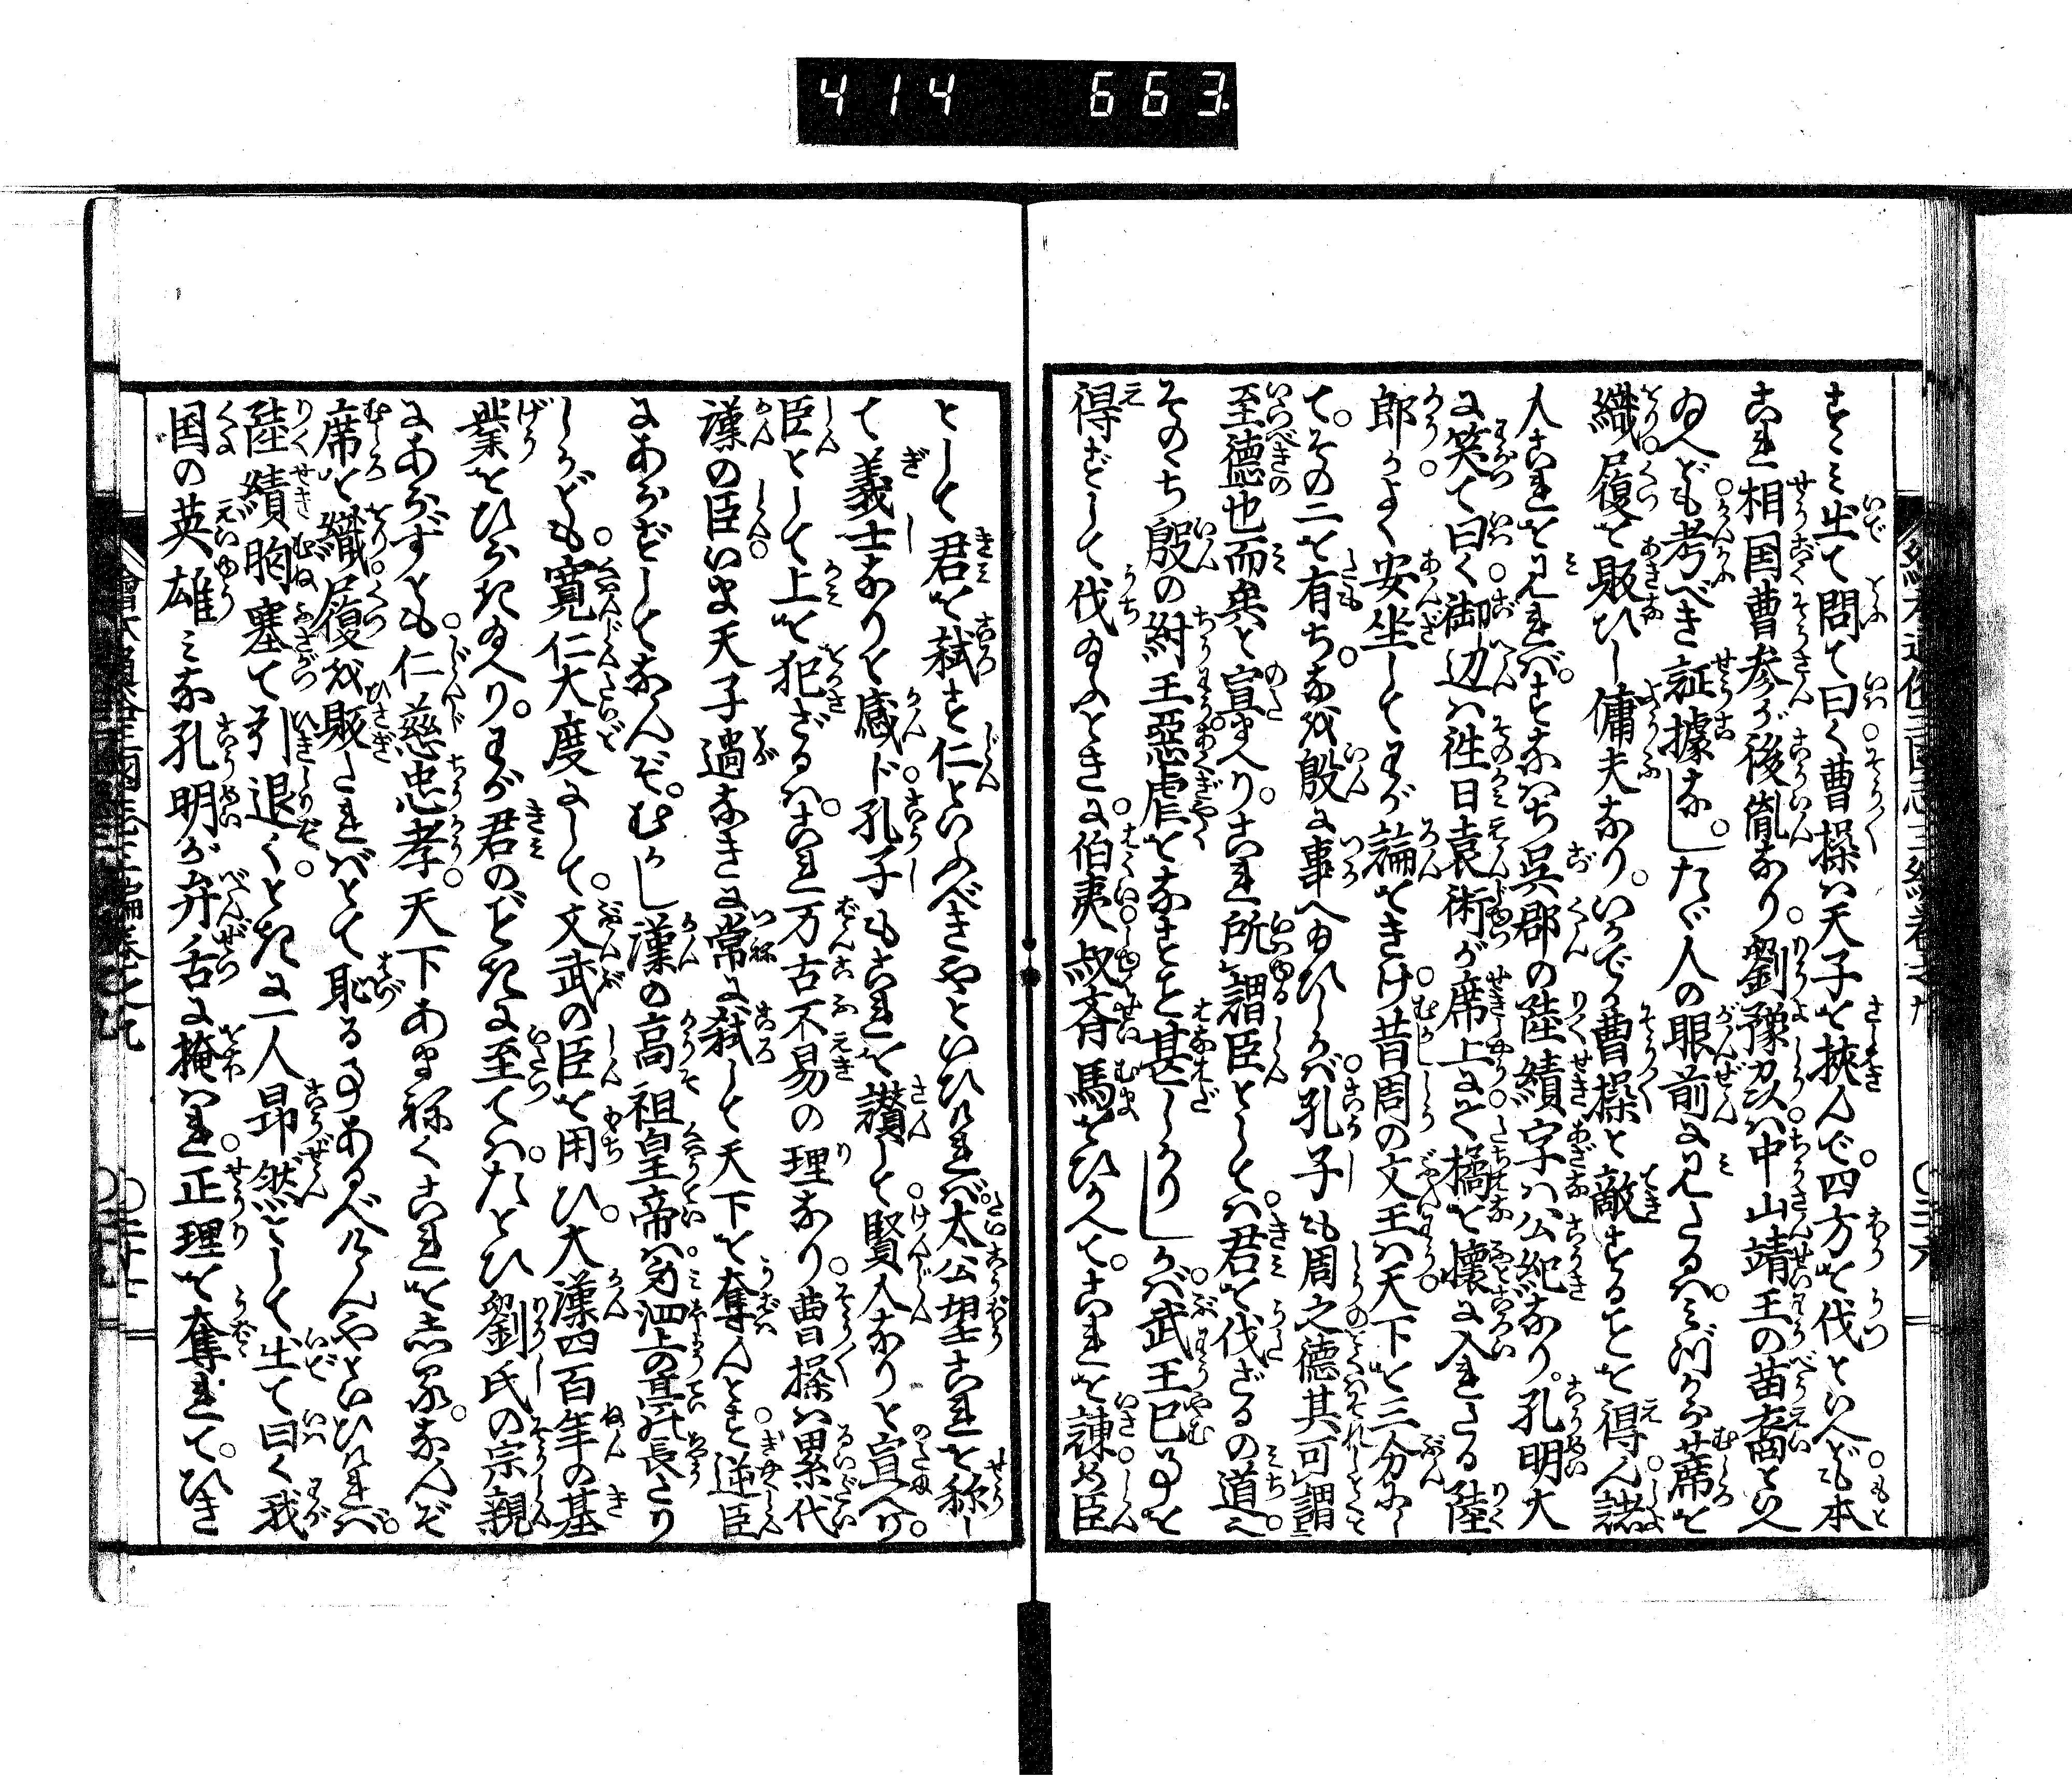 414 663
すゝミ出て問て曰く曹操ハ天子を挾んで四方を伐といへども本
これ相国曹参が後胤なり劉豫州ハ中山靖王の苗裔といへ
ゐへども考べき証據なしたゞ人の眼前に見たるハミづから蓆を
織履を販ひし傭夫なりいかでか曹操と敵することを得ん諸
人これを見れバすなハち呉郡の陸績字ハ公紀なり孔明大
に笑て曰く御辺ハ往日袁術が席上にて橘を懐に入れたる陸
郎かよく安坐してわが論をきけ昔周の文王ハ天下を三分にし
てその二を有ちなを殷に事へ給ひしかバ孔子も周之德其可謂
至德也而矣と宣まへりこれ所謂臣としてハ君を伐ざるの道也
そのゝち殷の紂王惡虐をなすこと甚しかりしかバ武王已事を
得ずして伐給ふときに伯夷叔斉馬をひかへてこれを諌め臣
として君を弑す仁といふべきやといひけれバ太公望これを称し
て義士なりと感ド孔子もこれを讃して賢人なりと宣へり
臣として上を犯ざるハこれ万古不易の理なり曹操ハ累代
漢の臣いま天子過なきに常に弑して天下を奪んとす逆臣
にあらずしてなんぞむかし漢の高祖皇帝ハ身泗上の亭長たり
しかども寛仁大度にして文武の臣を用ひ大漢四百年の基
業をひらきたまへりわが君のごときに至てハたとひ劉氏の宗親
にあらずとも仁慈忠孝天下あまねくこれをしるなんぞ
席を織履を販たれバとて恥る事あるべけんやといひけれバ
陸績胸塞て引退くときに一人昻然として出て曰く我
国の英雄ミな孔明が弁舌に掩ハれ正理を奪れてひき